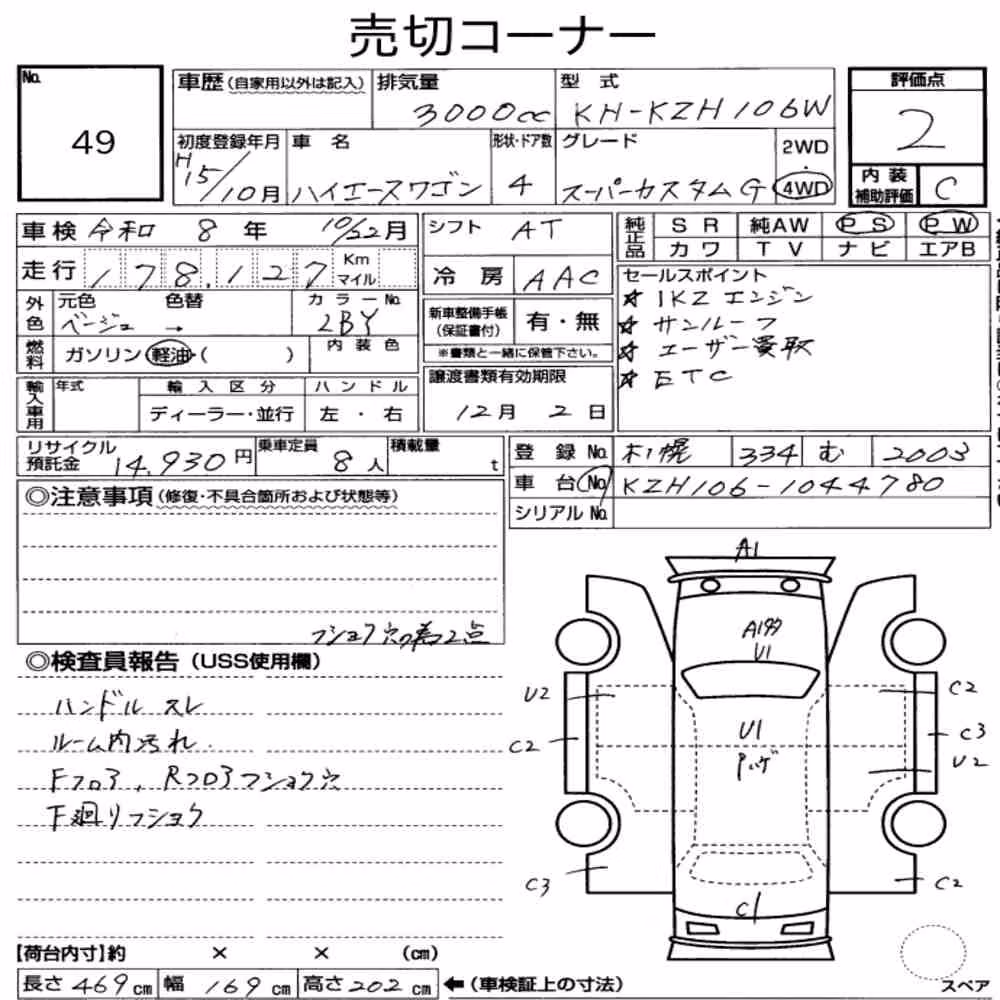 売切コーナー
No. 49
車歴(自家用以外は記入) 排気量 3000cc 型式 KH-KZH106W 評価点 2
初度登録年月 H15/10月 車名 ハイエースワゴン 形状・ドア数 4 グレード スーパーカスタムG 2WD 4WD 内装補助評価 C
車検 令和 8年 10/22月 シフト AT 純正品 SR 純AW PS PW
カワ TV ナビ エアB
走行 178,127 Km マイル 冷房 AAC セールスポイント
外色 元色 色替 カラーNo.
ベージュ → 2BY
新車整備手帳(保証書付) 有・無
※書類と一緒に保管下さい。
☆ 1KZ エンジン
☆ サンルーフ
☆ ユーザー買取
☆ ETC
燃料 ガソリン・軽油・( ) 内装色
譲渡書類有効期限
12月 2日
輸入車用 年式 輸入区分 ハンドル
ディーラー・並行 左・右
リサイクル預託金 14,930円 乗車定員 8人 積載量 t
登録No. 札幌 334 む 2003
車台No. KZH106-1044780
シリアルNo.
◎注意事項(修復・不具合箇所および状態等)
フショク穴の為2点
◎検査員報告(USS使用欄)
ハンドル スレ
ルーム内汚れ
Fフロア、Rフロアフショク穴
下廻リフショク
A1
A1タタ
U1
U2
C2
C2
C3
U1
U2
C3
C2
C1
【荷台内寸】約 × × (cm)
長さ 469cm 幅 169cm 高さ 202cm ←(車検証上の寸法)
スペア